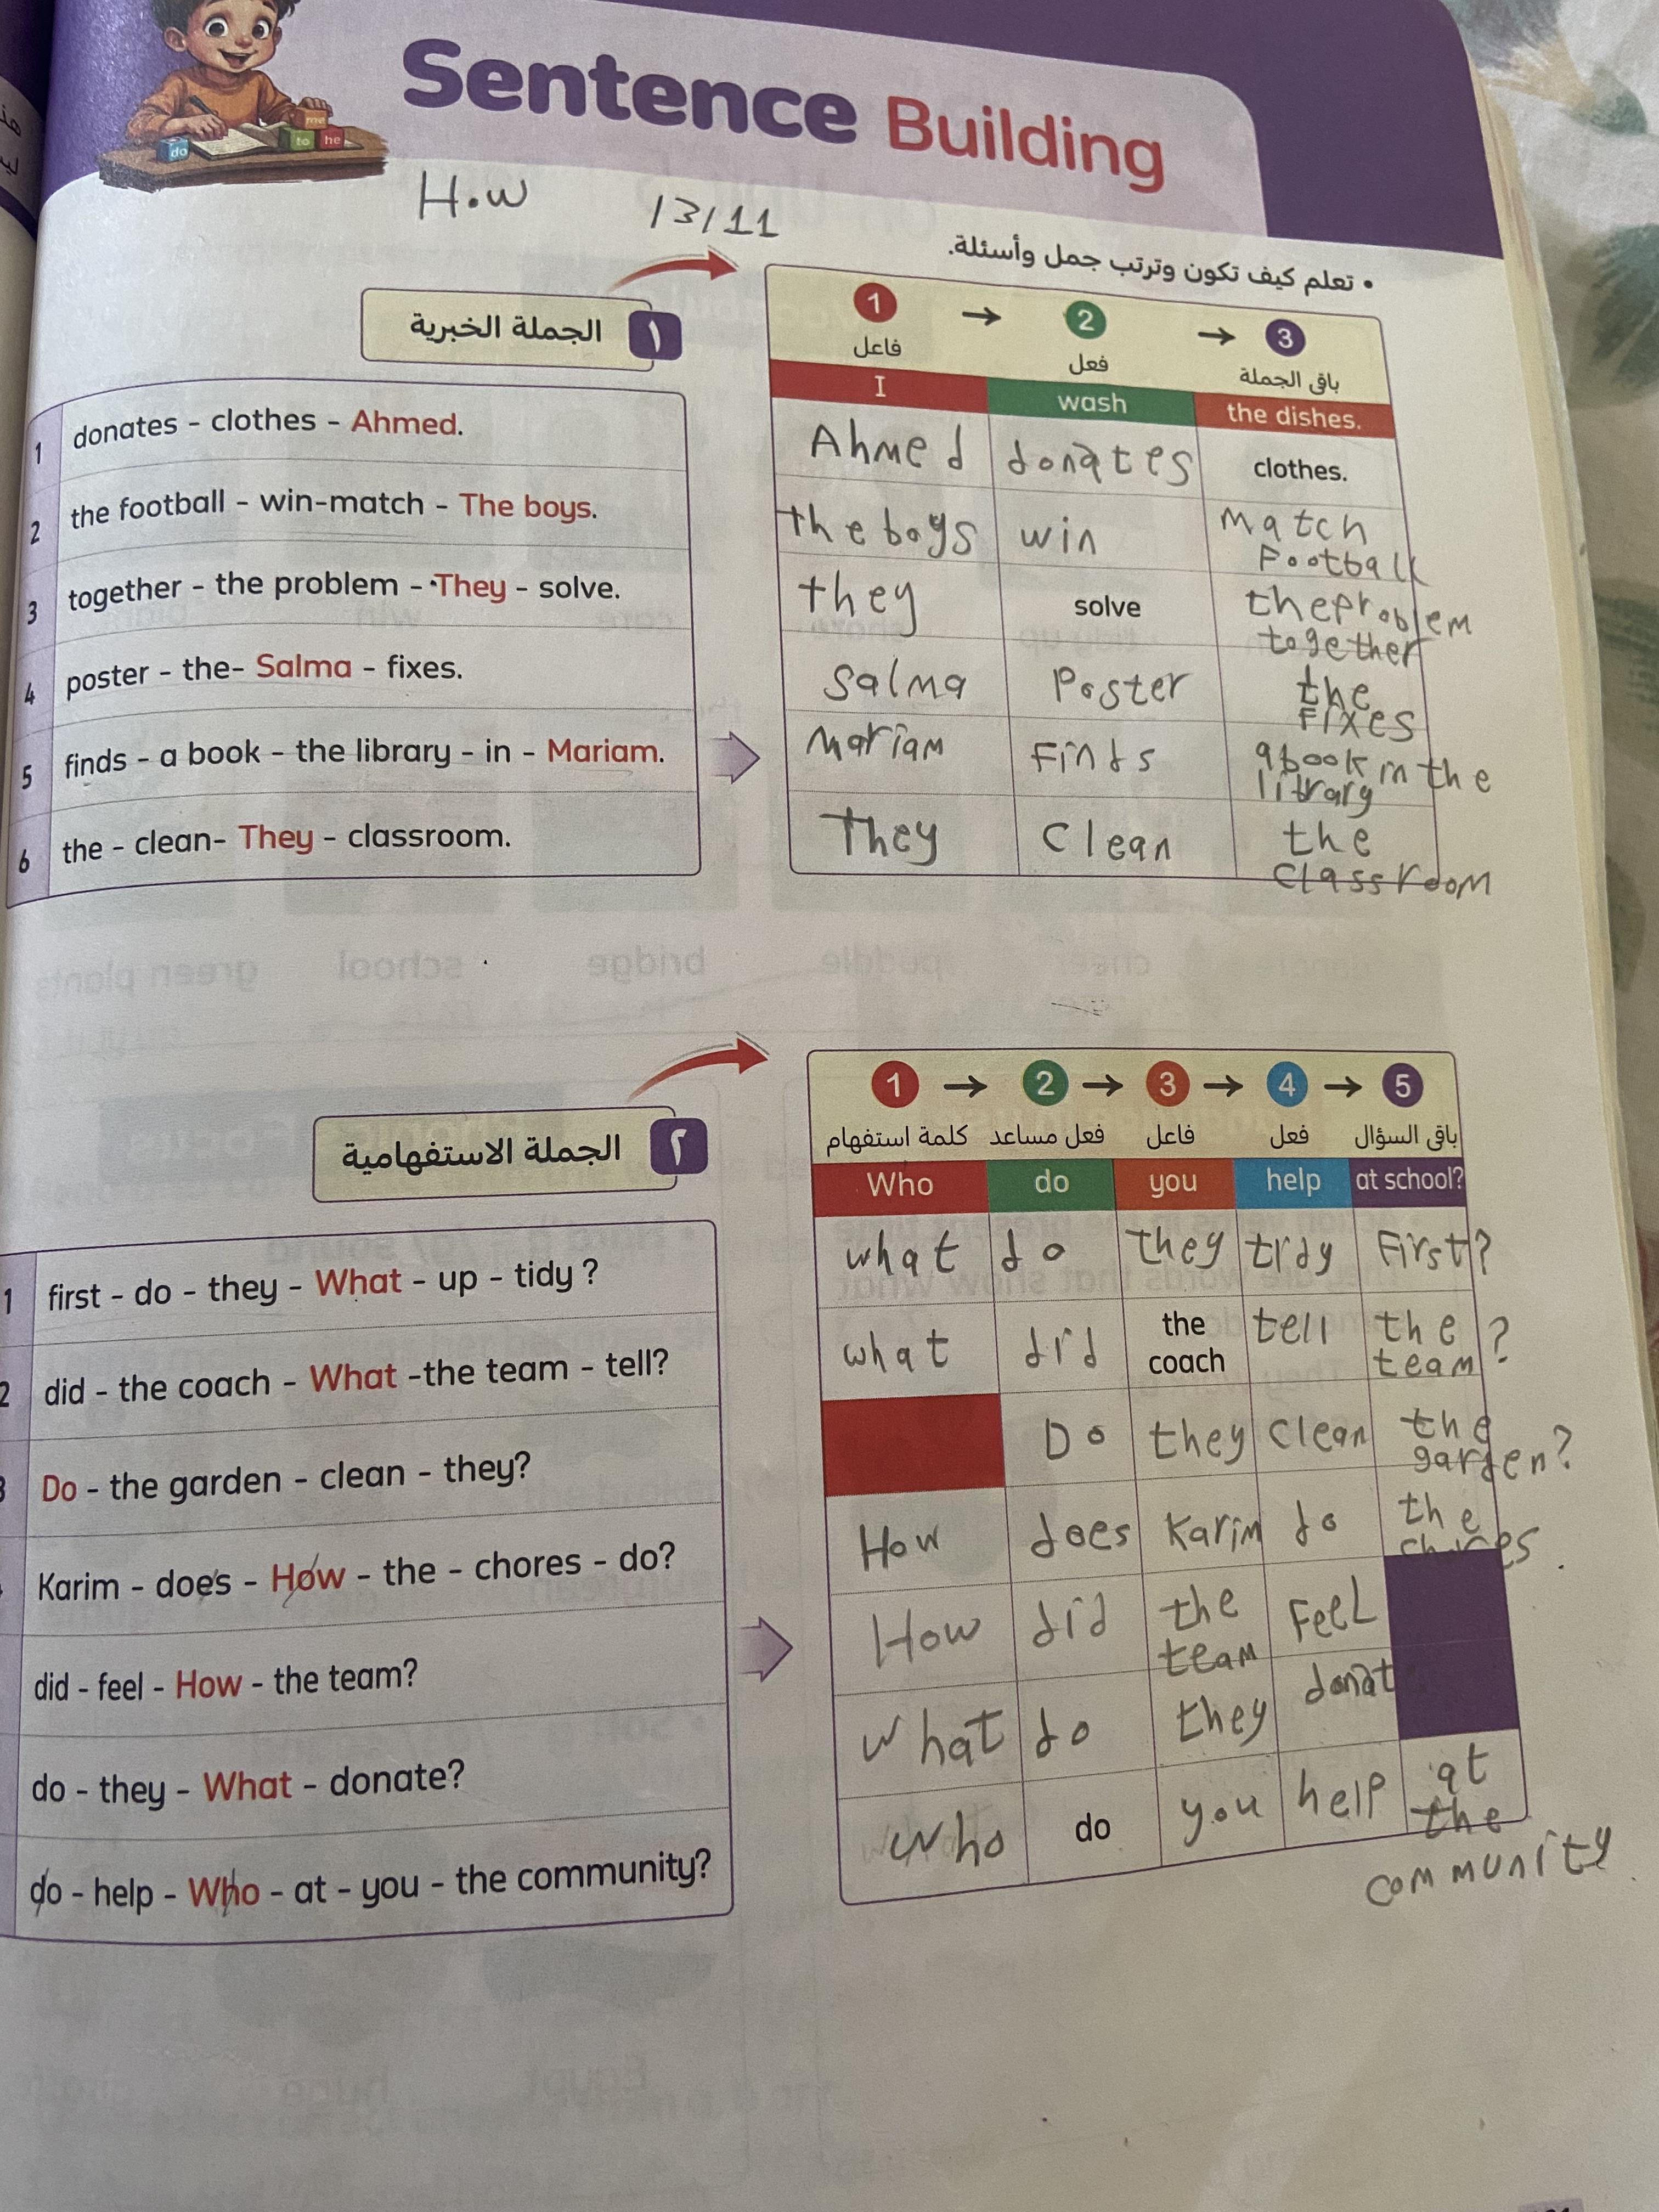 Sentence Building
H.W 13/11
• تعلم كيف تكون وترتب جمل وأسئلة.
do
to
he
me
١ الجملة الخبرية
1 donates - clothes - Ahmed.
2 the football - win-match - The boys.
3 together - the problem - They - solve.
4 poster - the- Salma - fixes.
5 finds - a book - the library - in - Mariam.
6 the - clean- They - classroom.
1 → 2 → 3
فاعل فعل باقى الجملة
I wash the dishes.
Ahmed donates clothes.
the boys win match
Football
they solve the problem
together
Salma Poster the
Fixes
Mariam Finds a book in the
library
They Clean the
classroom
٢ الجملة الاستفهامية
1 first - do - they - What - up - tidy ?
2 did - the coach - What -the team - tell?
3 Do - the garden - clean - they?
Karim - does - How - the - chores - do?
did - feel - How - the team?
do - they - What - donate?
do - help - Who - at - you - the community?
1 → 2 → 3 → 4 → 5
كلمة استفهام فعل مساعد فاعل فعل باقى السؤال
Who do you help at school?
what do they tidy First?
what did the coach tell the team?
Do they clean the garden?
How does Karim do the chores.
How did the team Feel
what do they donat
Who do you help at the
community.